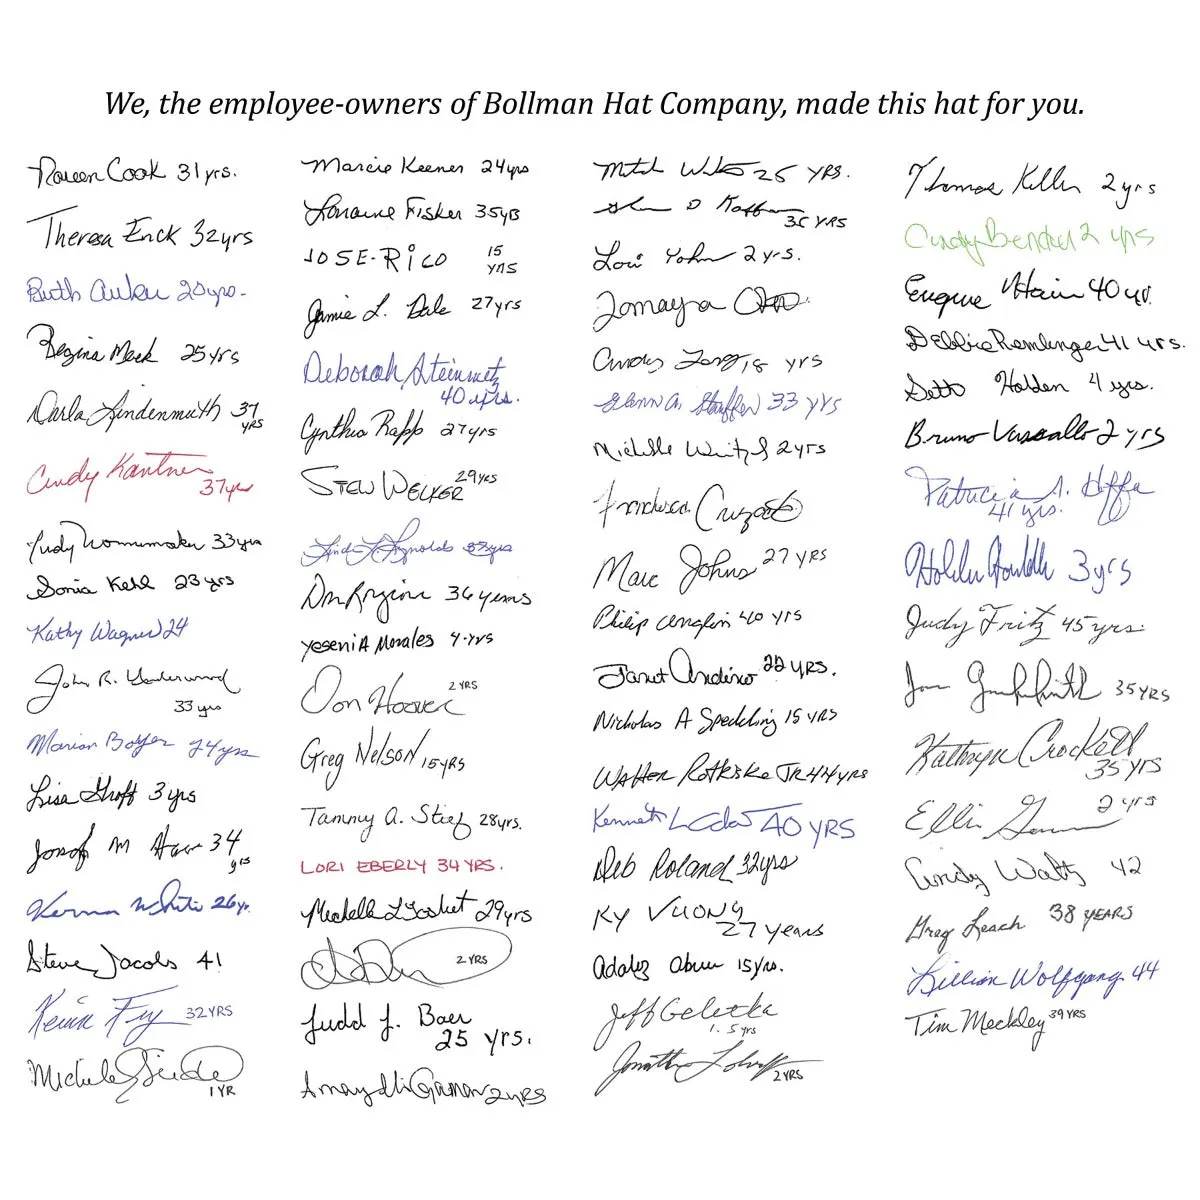 We, the employee-owners of Bollman Hat Company, made this hat for you.
Doreen Cook 31 yrs.
Theresa Enck 32 yrs
Ruth Auker 20 yrs.
Regina Meck 25 yrs
Darla Lindenmuth 37
YRS
Cindy Kantner
37 yrs
Judy Wonnemaker 33 yrs
Sonia Kehl 23 yrs
Kathy Wagner 24
John R.
33 yrs
Marian Boyer 24 yrs
Lisa Groff 3 yrs
M 34
yrs
White 26 yr.
Steve Jacobs 41
Kevin Fry 32 YRS
Michele
1 YR
Marcie Keener 24 yrs
Lorraine Fisher 35 yrs
JOSE-RICO 15
yrs
Jamie L. Dale 27 yrs
Deborah Steinmetz
40 yrs.
Cynthia Rapp 27 yrs
STEW WELKER 29 YRS
Linda L. Reynolds yrs
36 years
YeseniA Morales 4-yrs
Don Hoover 2 YRS
Greg Nelson 15 YRS
Tammy A. Stief 28 yrs.
LORI EBERLY 34 YRS.
29 yrs
2 YRS
Judd J. Baer
25 yrs.
2 YRS
Mitch 25 YRS.
D
YRS
Lori Yohn 2 yrs.
Tomaya
Cindy 18 yrs
Glenn A. Stauffer 33 yrs
Michelle 2 yrs
Francisca
Marc Johns 27 YRS
Philip 40 yrs
Janet Andino 22 YRS.
Nicholas A Spedding 15 YRS
Walter Rotkiske JR 44 yrs
Kenneth 40 YRS
Deb Roland 32 yrs
KY VUONG
27 years
15 yrs.
Jeff Geletka
1.5 yrs
Jonathan
2 YRS
Thomas Keller 2 yrs
Cindy Bender 2 yrs
Eugene Hain 40 yr.
Debbie Remlinger 41 yrs.
Seth Holden 4 yrs.
Bruno Vassallo 2 yrs
Patricia A.
41 yrs.
3 yrs
Judy Fritz 45 yrs.
35 YRS
Kathryn Crockett
35 YRS
2 yrs
Cindy Waltz 42
Greg Leach 38 YEARS
Lillian Wolfgang 44
Tim Meckley 39 YRS